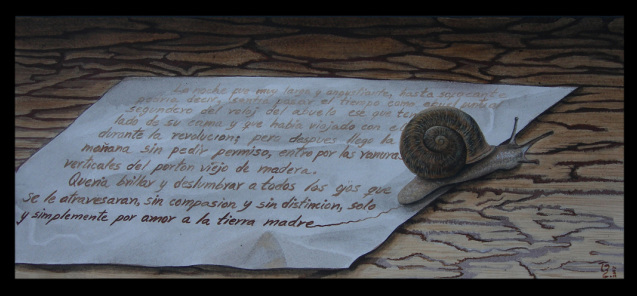 La noche fue muy lenta y angustiante, hasta
podria decir, sentia pasar el tiempo como aquel
segundero del reloj del abuelo ese que
lado de su cama y que habia viajado con
durante la revolucion; pero despues llego la
mañana sin pedir permiso, entro por las ranuras
verticales del porton viejo de madera.
Queria, brillar y deslumbrar a todos los ojos que
se le atravesaran, sin compasion y sin distincion, solo
y simplemente por amor a la tierra madre